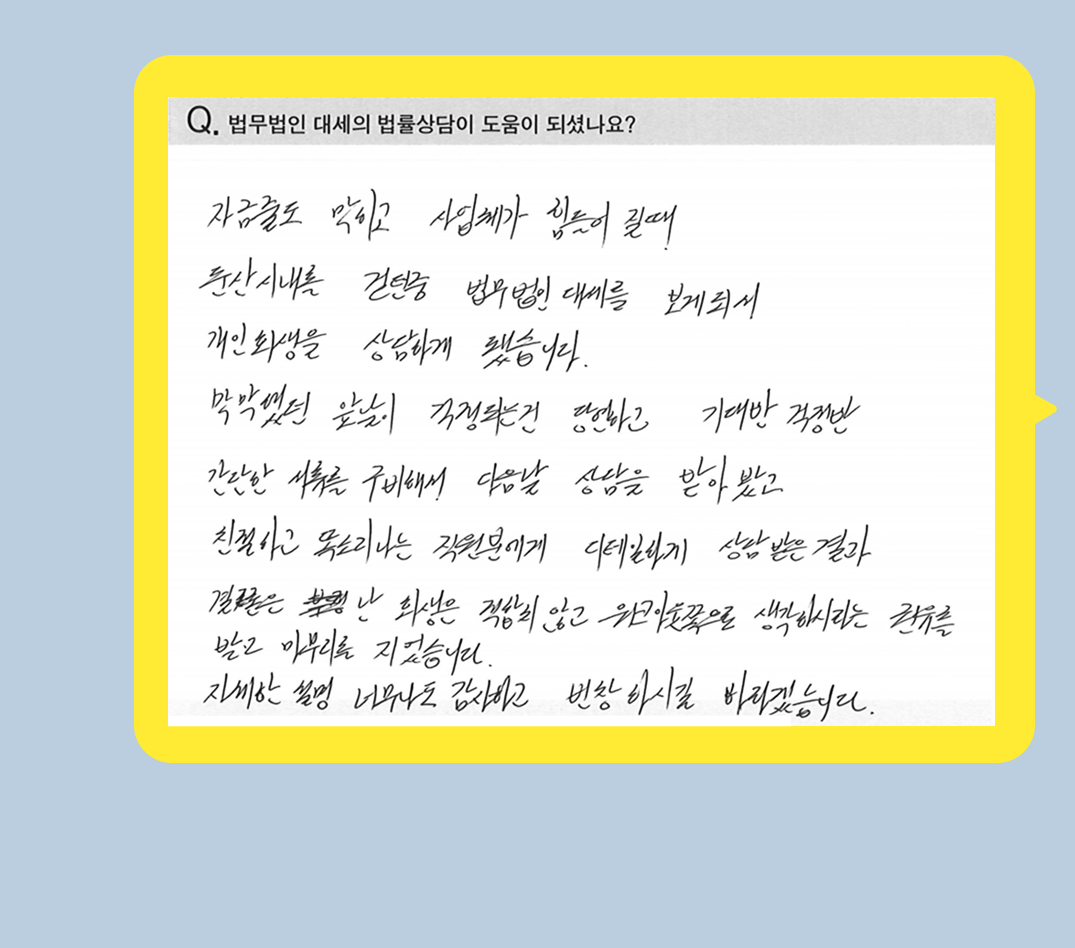 Q. 법무법인 대세의 법률상담이 도움이 되셨나요?
자금줄도 막히고 사업체가 힘들어 질때
둔산시내를 걷던중 법무법인 대세를 보게되서
개인회생을 상담하게 됐습니다.
막막했던 앞날이 걱정되는건 당연하고 기대반 걱정반
간단한 서류를 구비해서 다음날 상담을 받아 봤고
친절하고 똑소리나는 직원분에게 디테일하게 상담 받은 결과
결론은 난 회생은 적합히 않고 생각하시라는 권유를
받고 마무리를 지었습니다.
자세한 설명 너무나도 감사하고 번창 하시길 바라겠습니다.